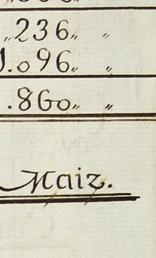 „236„ „
1.096„ „
.860„ „
Maiz.